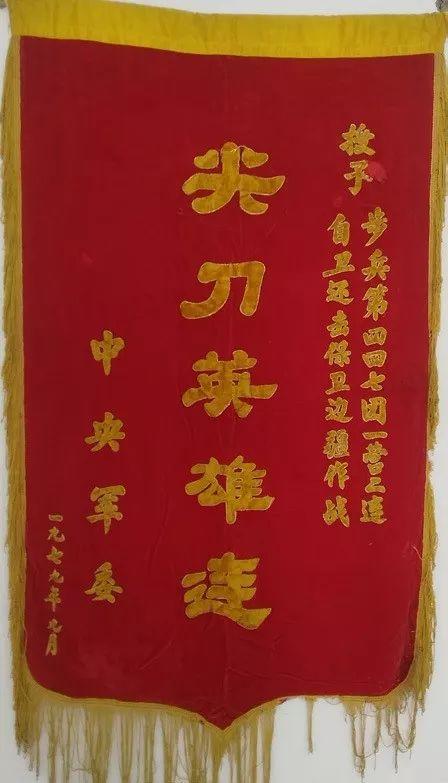 授予
步兵第四四七团一营二连
自卫还击保卫边疆作战
尖刀英雄连
中央军委
一九七九年九月